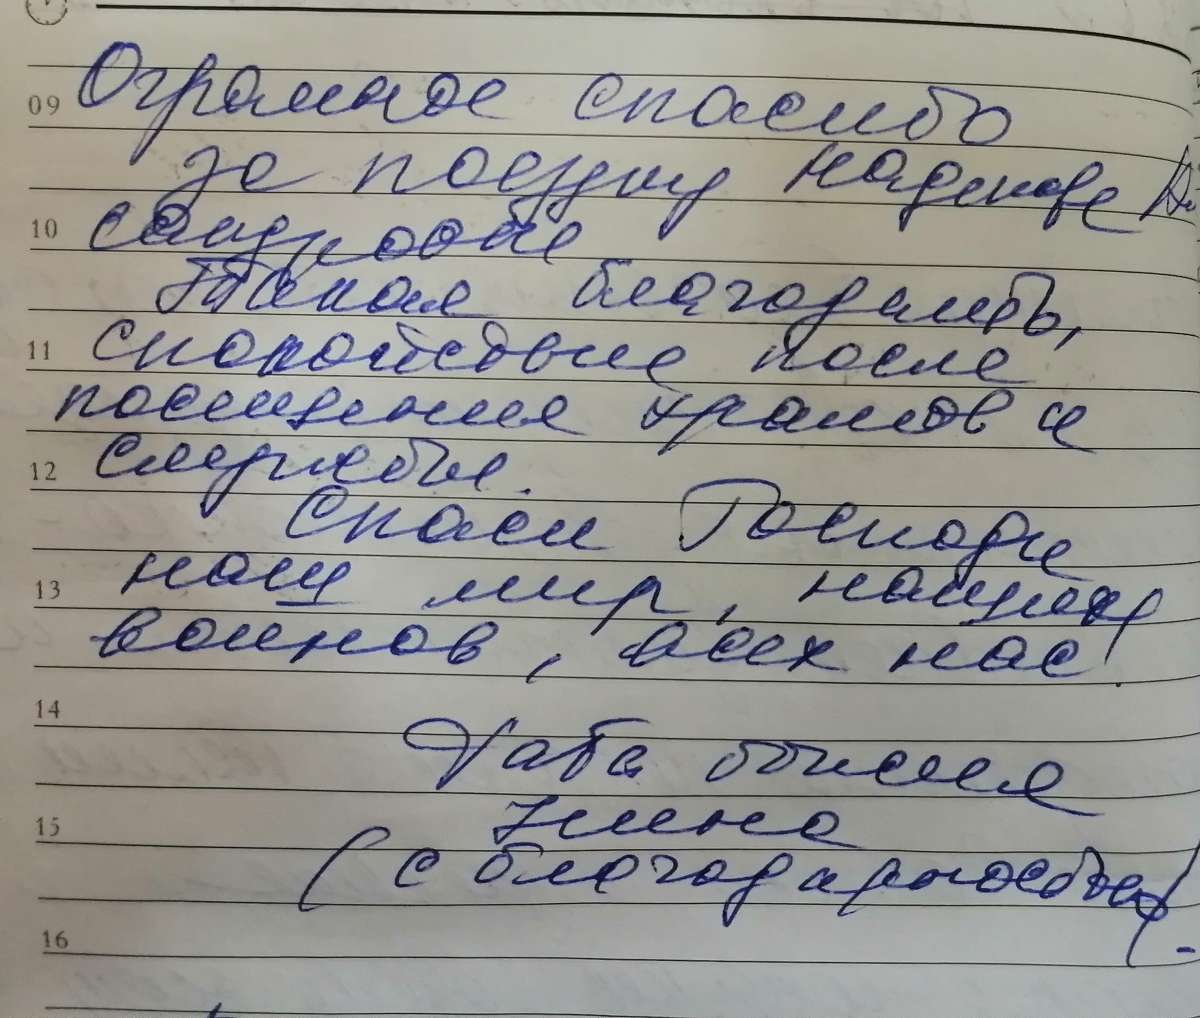 Огромное спасибо
09
за поездку Надежде
10
сандровне
Такая благодать,
11
спокойствие после
посещения храмов и
12
службы.
Спаси Господи
13
наш мир, наших
воинов, всех нас!
14
Раба божия
15
Нина
(с благодарностью).
16